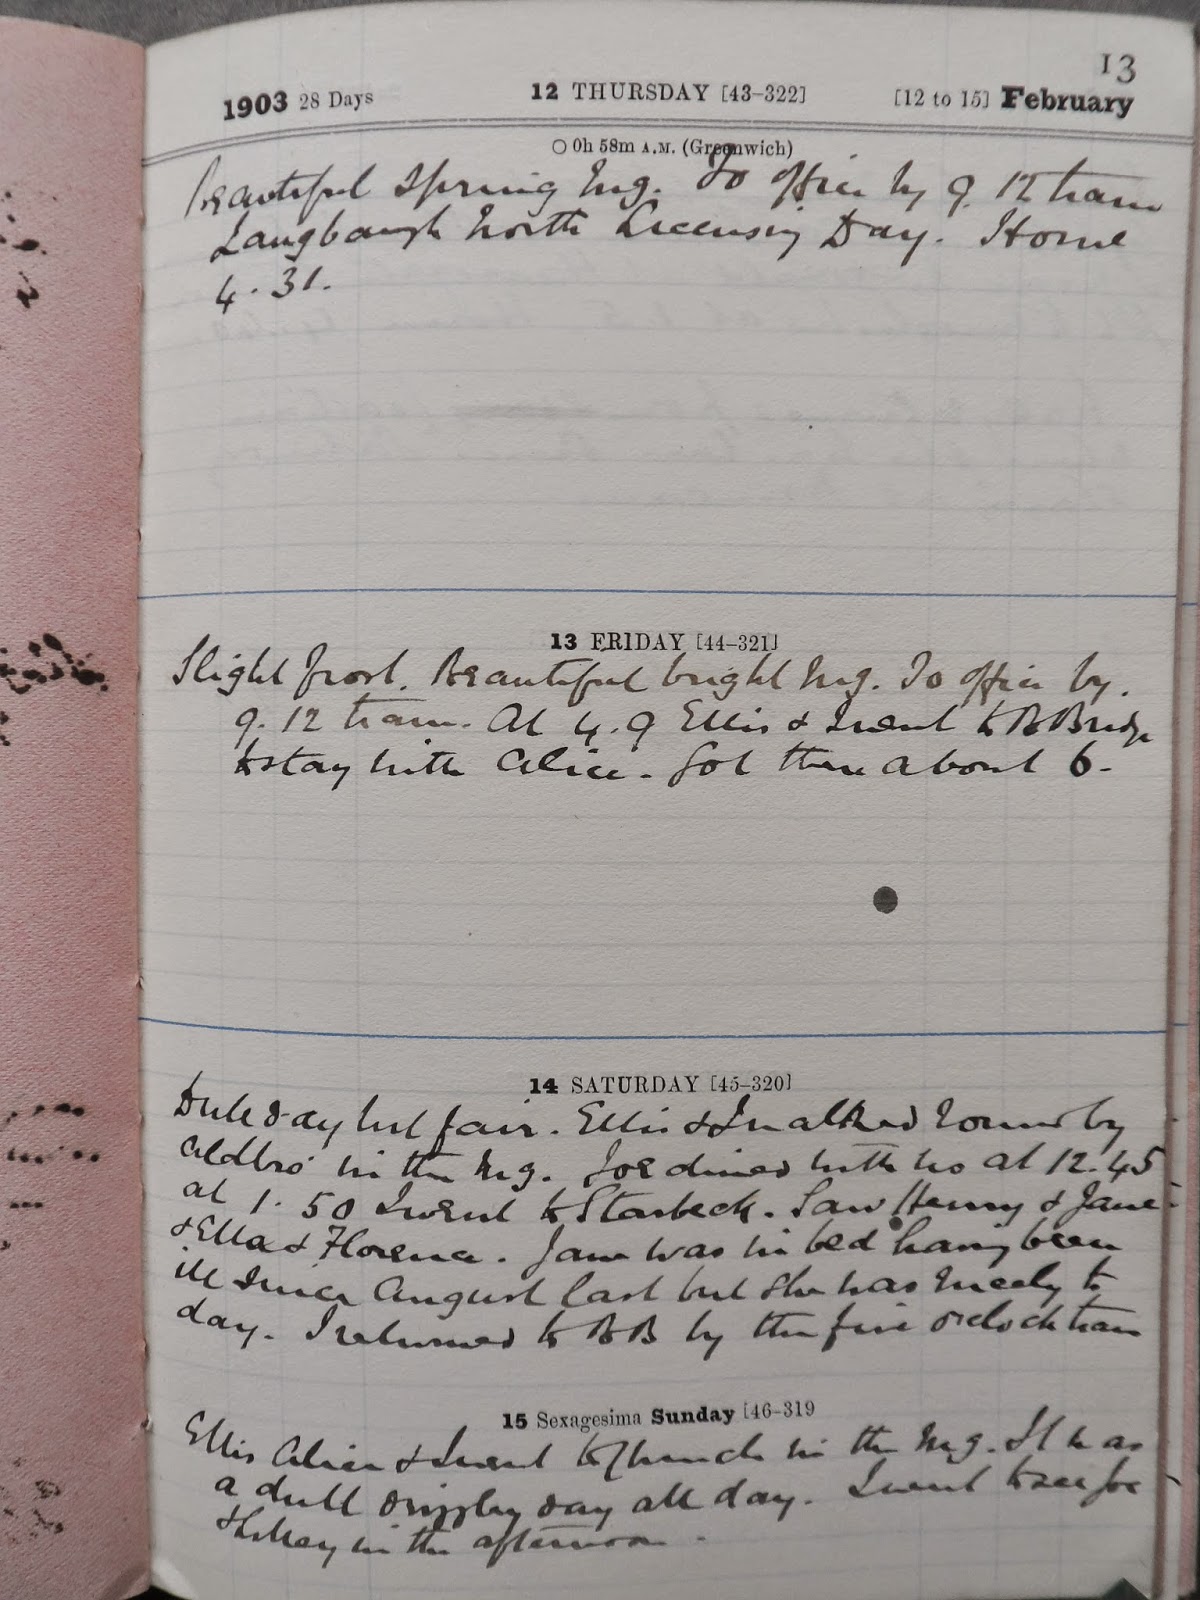 13
1903 28 Days 12 THURSDAY [43–322] [12 to 15] February
0h 58m A.M. (Greenwich)
Beautiful Spring Mg. To office by 9.12 tram
Langbaurgh North Licensing Day. Home
4.31.
13 FRIDAY [44–321]
Slight frost. Beautiful bright Mg. To office by.
9.12 tram. At 4.9 Ellis & I went to B Bridge
to stay with Alice. Got there about 6.
14 SATURDAY [45–320]
Dull day but fair. Ellis & I walked round by
Aldbro' in the Mg. Joe dined with us at 12.45
at 1.50 I went to Starbeck. Saw Henry & Jane
& Ella & Florence. Jane was in bed having been
ill since August last but she was nicely to
day. I returned to BB by the five o'clock train
15 Sexagesima Sunday [46–319
Ellis Alice & I went to Church in the Mg. It was
a dull drizzley day all day. I went to see Joe
& in the afternoon.